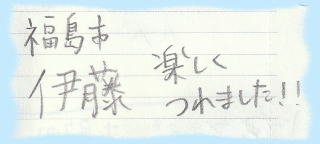 福島市
伊藤
楽しく
つれました!!